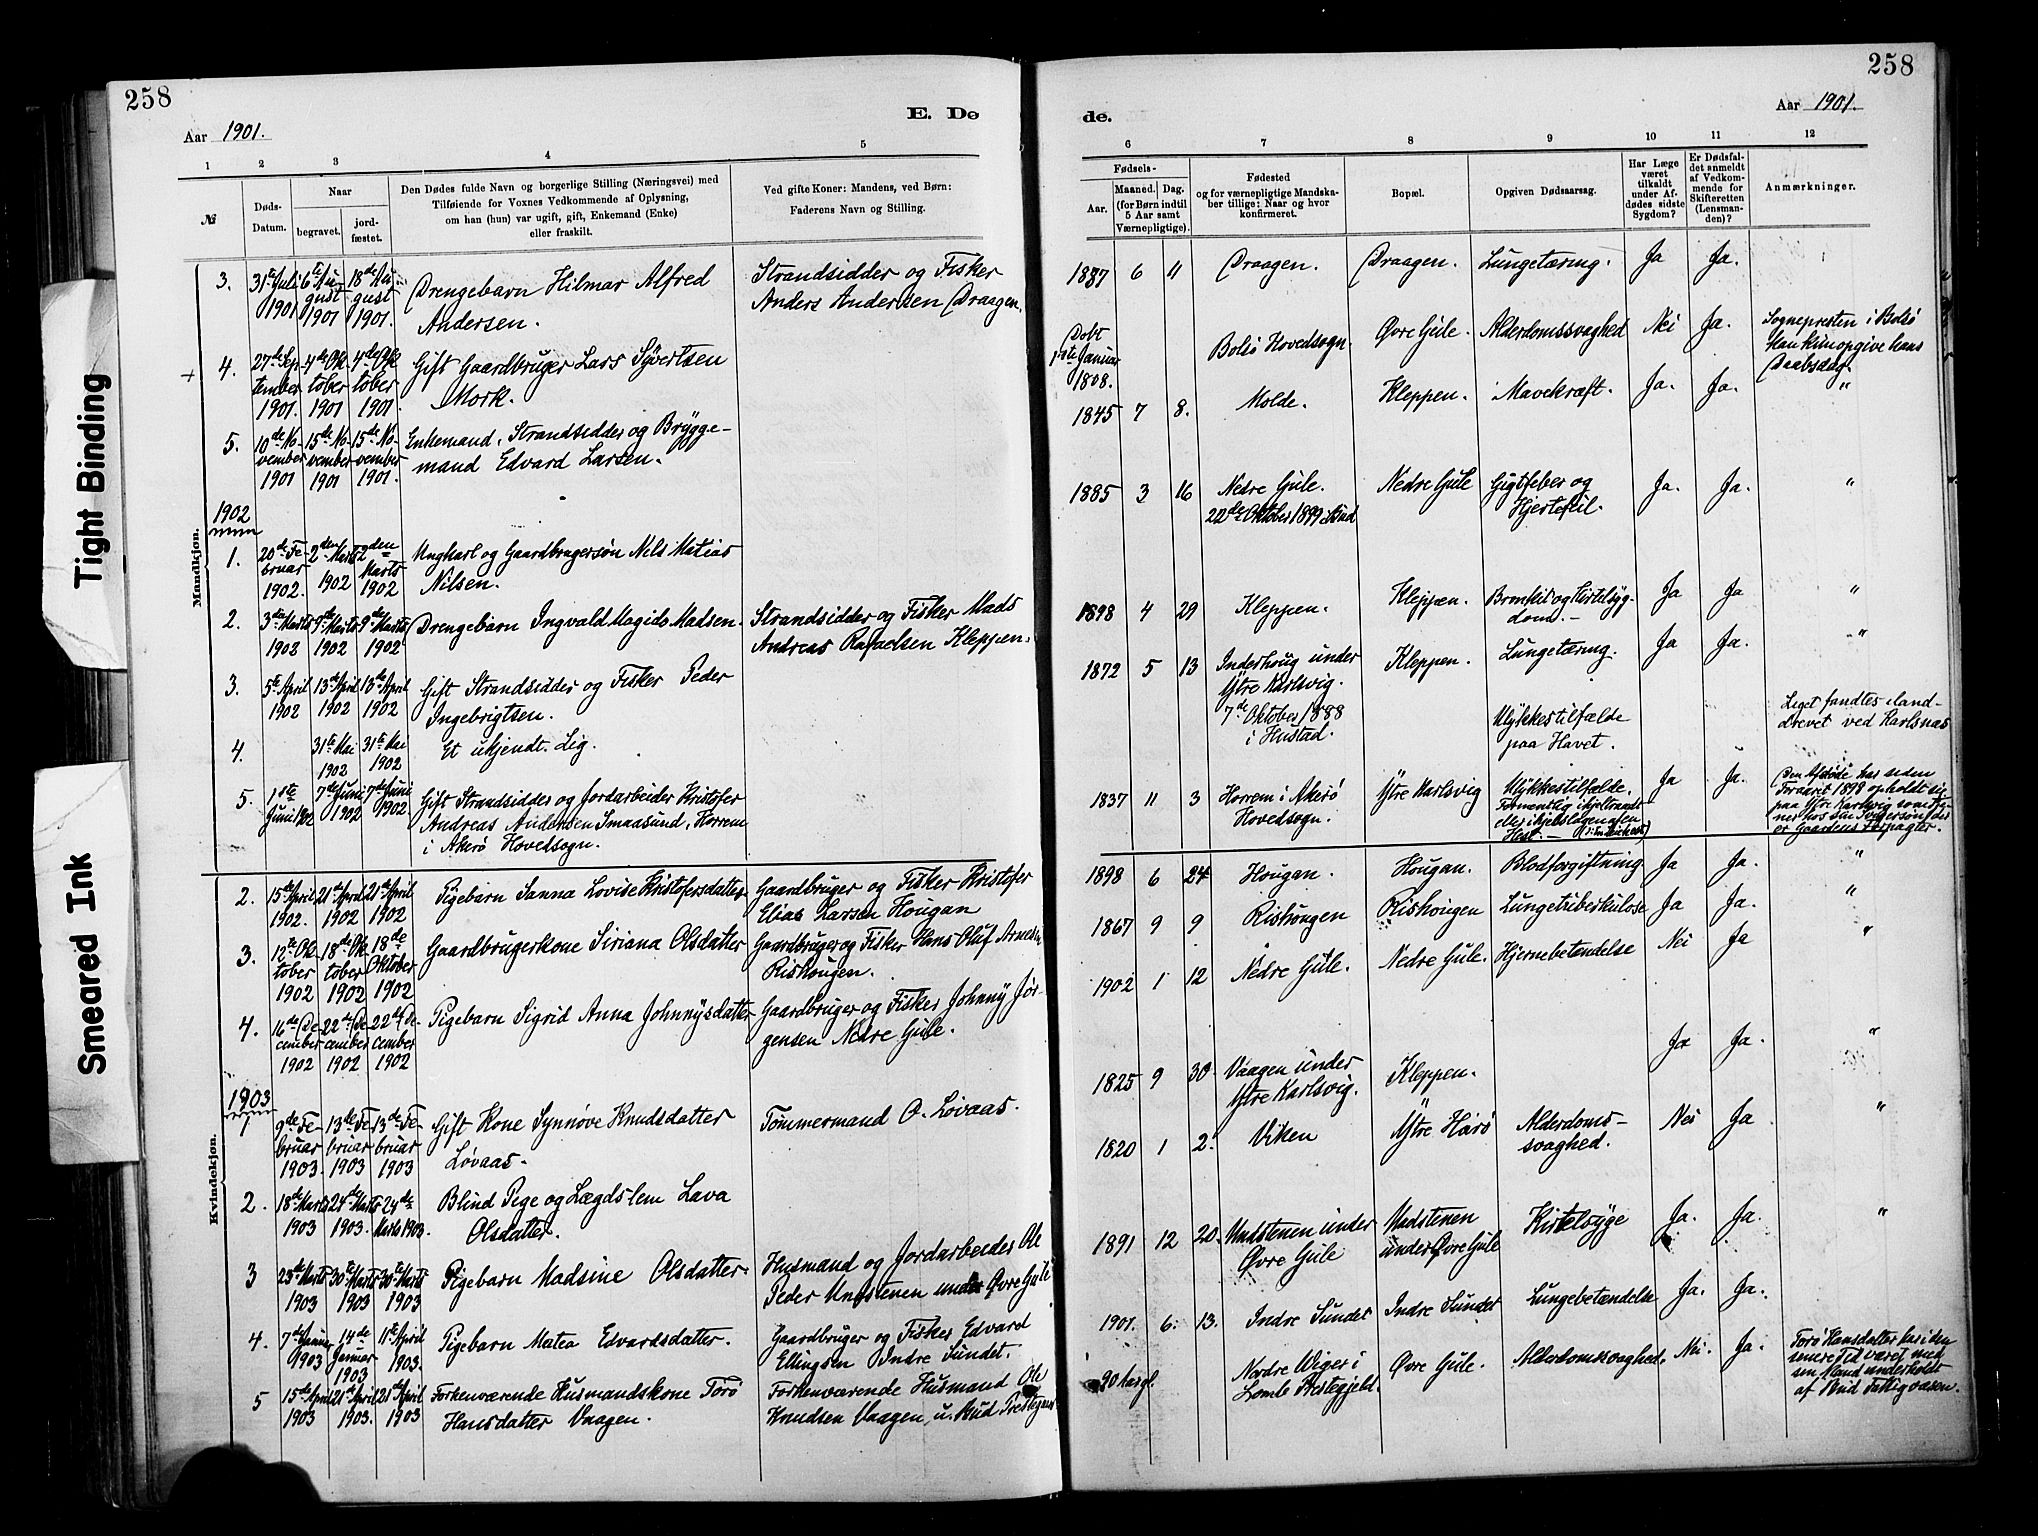 258
Aar 1901.
E. Dø
1 2 3 4 5
№
Døds-
Datum.
Naar
begravet.
jord-
fæstet.
Den Dødes fulde Navn og borgerlige Stilling (Næringsvei) med
Tilføiende for Voxnes Vedkommende af Oplysning,
om han (hun) var ugift, gift, Enkemand (Enke)
eller fraskilt.
Ved gifte Koner: Mandens, ved Børn:
Faderens Navn og Stilling.
Mandkjøn.
3. 31te Juli 6te Au- 18de Au- Drengebarn Hilmar Alfred Strandsidder og Fisker
1901 gust gust Andersen. Anders Andersen Draagen.
1901 1901.
4. 27de Sep- 4de Ok- 4de Ok- Gift Gaardbruger Lars Syvertsen
tember tober tober Mork.
1901. 1901 1901.
5. 10de No- 15de No- 15de No- Enkemand, Strandsidder og Brygge-
vember vember vember mand Edvard Larsen.
1901 1901 1901.
1902
1. 20de Fe- 2den Marts 2den Ungkarl og Gaardbrugersøn Nils Matias
bruar 1902 Marts Nilsen.
1902. 1902
2. 3die Marts 9de Marts 9de Marts Drengebarn Ingvald Magids Madsen. Strandsidder og Fisker Mads
1902 1902 1902 Andreas Rafaelsen Kleppen.
3. 5te April 13de April 13de April Gift Strandsidder og Fisker Peder
1902 1902 1902 Ingebrigtsen.
4. 31te Mai 31te Mai Et ukjendt Lig.
1902 1902
5. 1ste 7de Juni 7de Juni Gift Strandsidder og Jordarbeider Kristofer
Juni 1902 1902 1902 Andreas Andersen Smaasund, Horrem
i Akerø Hovedsogn.
Kvindekjøn.
2. 15de April 21de April 21de April Pigebarn Sanna Lovise Kristofersdatter Gaardbruger og Fisker Kristofer
1902. 1902 1902 Elias Larsen Hougan
3. 12te Ok- 18de Ok- 18de Gaardbrugerkone Siriana Olsdatter Gaardbruger og Fisker Hans Oluf Arnesen
tober tober Oktober Rishougen.
1902 1902 1902
4. 16de De- 22de De- 22de De- Pigebarn Sigrid Anna Johnnysdatter Gaardbruger og Fisker Johnny Jør-
cember cember cember gensen Nedre Gule.
1902 1902 1902
1903
1 9de Fe- 13de Fe- 13de Fe- Gift Kone Synnøve Knudsdatter Tømmermand O. Løvaas.
bruar bruar bruar Løvaas.
1903. 1903 1903
2. 18de Marts 24de Marts 24de Blind Pige og Lægdslem Lava
1903 1903. Marts 1903. Olsdatter.
3 25de Marts 30te Marts 30te Marts Pigebarn Madsine Olsdatter. Husmand og Jordarbeider Ole
1903 1903 1903 Peder under Øvre Gule
4. 7de Januar 14de 11te April Pigebarn Matea Edvardsdatter. Gaardbruger og Fisker Edvard
1903 Januar 1903. Ellingsen Indre Sundet.
1903
5 15de April 21de April 21de April Forhenværende Husmandskone Torø Forhenværende Husmand Ole
1903 1903. 1903 Hansdatter Vaagen. Knudsen Vaagen, u. Bud
258
Aar 1901.
de.
6 7 8 9 10 11 12
Fødsels-
Aar.
Maaned. Dag.
(for Børn indtil
5 Aar samt
Værnepligtige).
Fødested
og for værnepligtige Mandska-
ber tillige: Naar og hvor
konfirmeret.
Bopæl.
Opgiven Dødsaarsag.
Har Læge
været
tilkaldt
under Af-
dødes sidste
Sygdom?
Er Dødsfal-
det anmeldt
af Vedkom-
mende for
Skifteretten
(Lensman-
den)?
Anmærkninger.
1887 6 11 Draagen. Draagen. Lungetæring. Ja Ja.
Døbt Bolsø Hovedsogn. Øvre Gule. Alderdomssvaghed Nei Ja. Sognepresten i Bolsø
1ste Januar kan kun opgive hans
1808. Daabsdag.
1845 7 8. Molde. Kleppen. Mavekræft. Ja. Ja. "
1885 3 16 Nedre Gule. Nedre Gule Gigtfeber og Ja. Ja. "
22de Oktober 1899 i Bud Hjertefeil.
1898 4 29 Kleppen. Kleppen. Bronkit og Kirtelsyg- Ja Ja "
dom.
1872 5 13 Inderhoug under Kleppen. Lungetæring. Ja Ja. "
Ytre Karlsvig.
7de Oktober 1888
i Hustad.
Ulykkestilfælde Liget fandtes iland-
paa Havet. drevet ved Karlsnas
1837 11 3 Horrem i Akerø Ytre Karlsvig Ulykkestilfælde. Ja Ja. Den Afdøde har siden
Hovedsogn. Foraaret 1898 opholdt sig
paa Ytre Karlsvig som
Hest. er Gaardens Forpagter.
1898 6 24 Hougan. Hougan. Blodforgiftning Ja Ja. "
1867 9 9 Rishougen Rishougen Lungetuberkulose Ja Ja. "
1902 1 12 Nedre Gule. Nedre Gule. Hjernebetændelse Nei Ja "
1825 9 30 Vaagen under Kleppen. Ja Ja. "
Ytre Karlsvig.
1820 1 2. Viken Ytre Harø Alderdoms- Nei Ja "
svaghed.
1891 12 20. under Kirtelsyge Ja. Ja. "
Øvre Gule under Øvre Gule
1901. 6. 13. Indre Sundet Indre Sundet Lungebetændelse Ja. Ja.
90 Aar gl. Nordre Wiger i Øvre Gule. Alderdomssvaghed. Nei. Ja. Torø Hansdatter har i den
Lomb Prestegjeld. senere Tid været med
sin Mand underholdt
af Bud Fattigvæsen.
Tight Binding
Smeared Ink